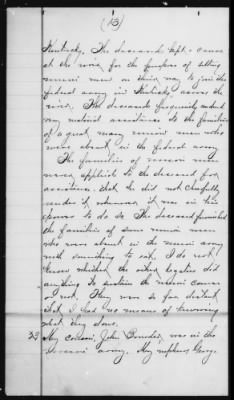 (13)
Kentucky. The deceased kept a canoe
at the river for the purpose of setting
union men on their way to join the
federal army in Kentucky, across the
river. The deceased frequently rendered
very material assistance to the families
of a great many union men who
were absent in the federal army
The families of union men
never applied to the deceased for
assistance, that he did not cheerfully
render it whenever it was in his
power to do so. The deceased furnished
the families of some union men
who were absent in the union army
with something to eat. I do not
know whether the other legatees did
anything to sustain the union cause
or not. They was so far distant
that I had no means of knowing
what they done.
33 My cousin, John, was in the
army. My nephew, George